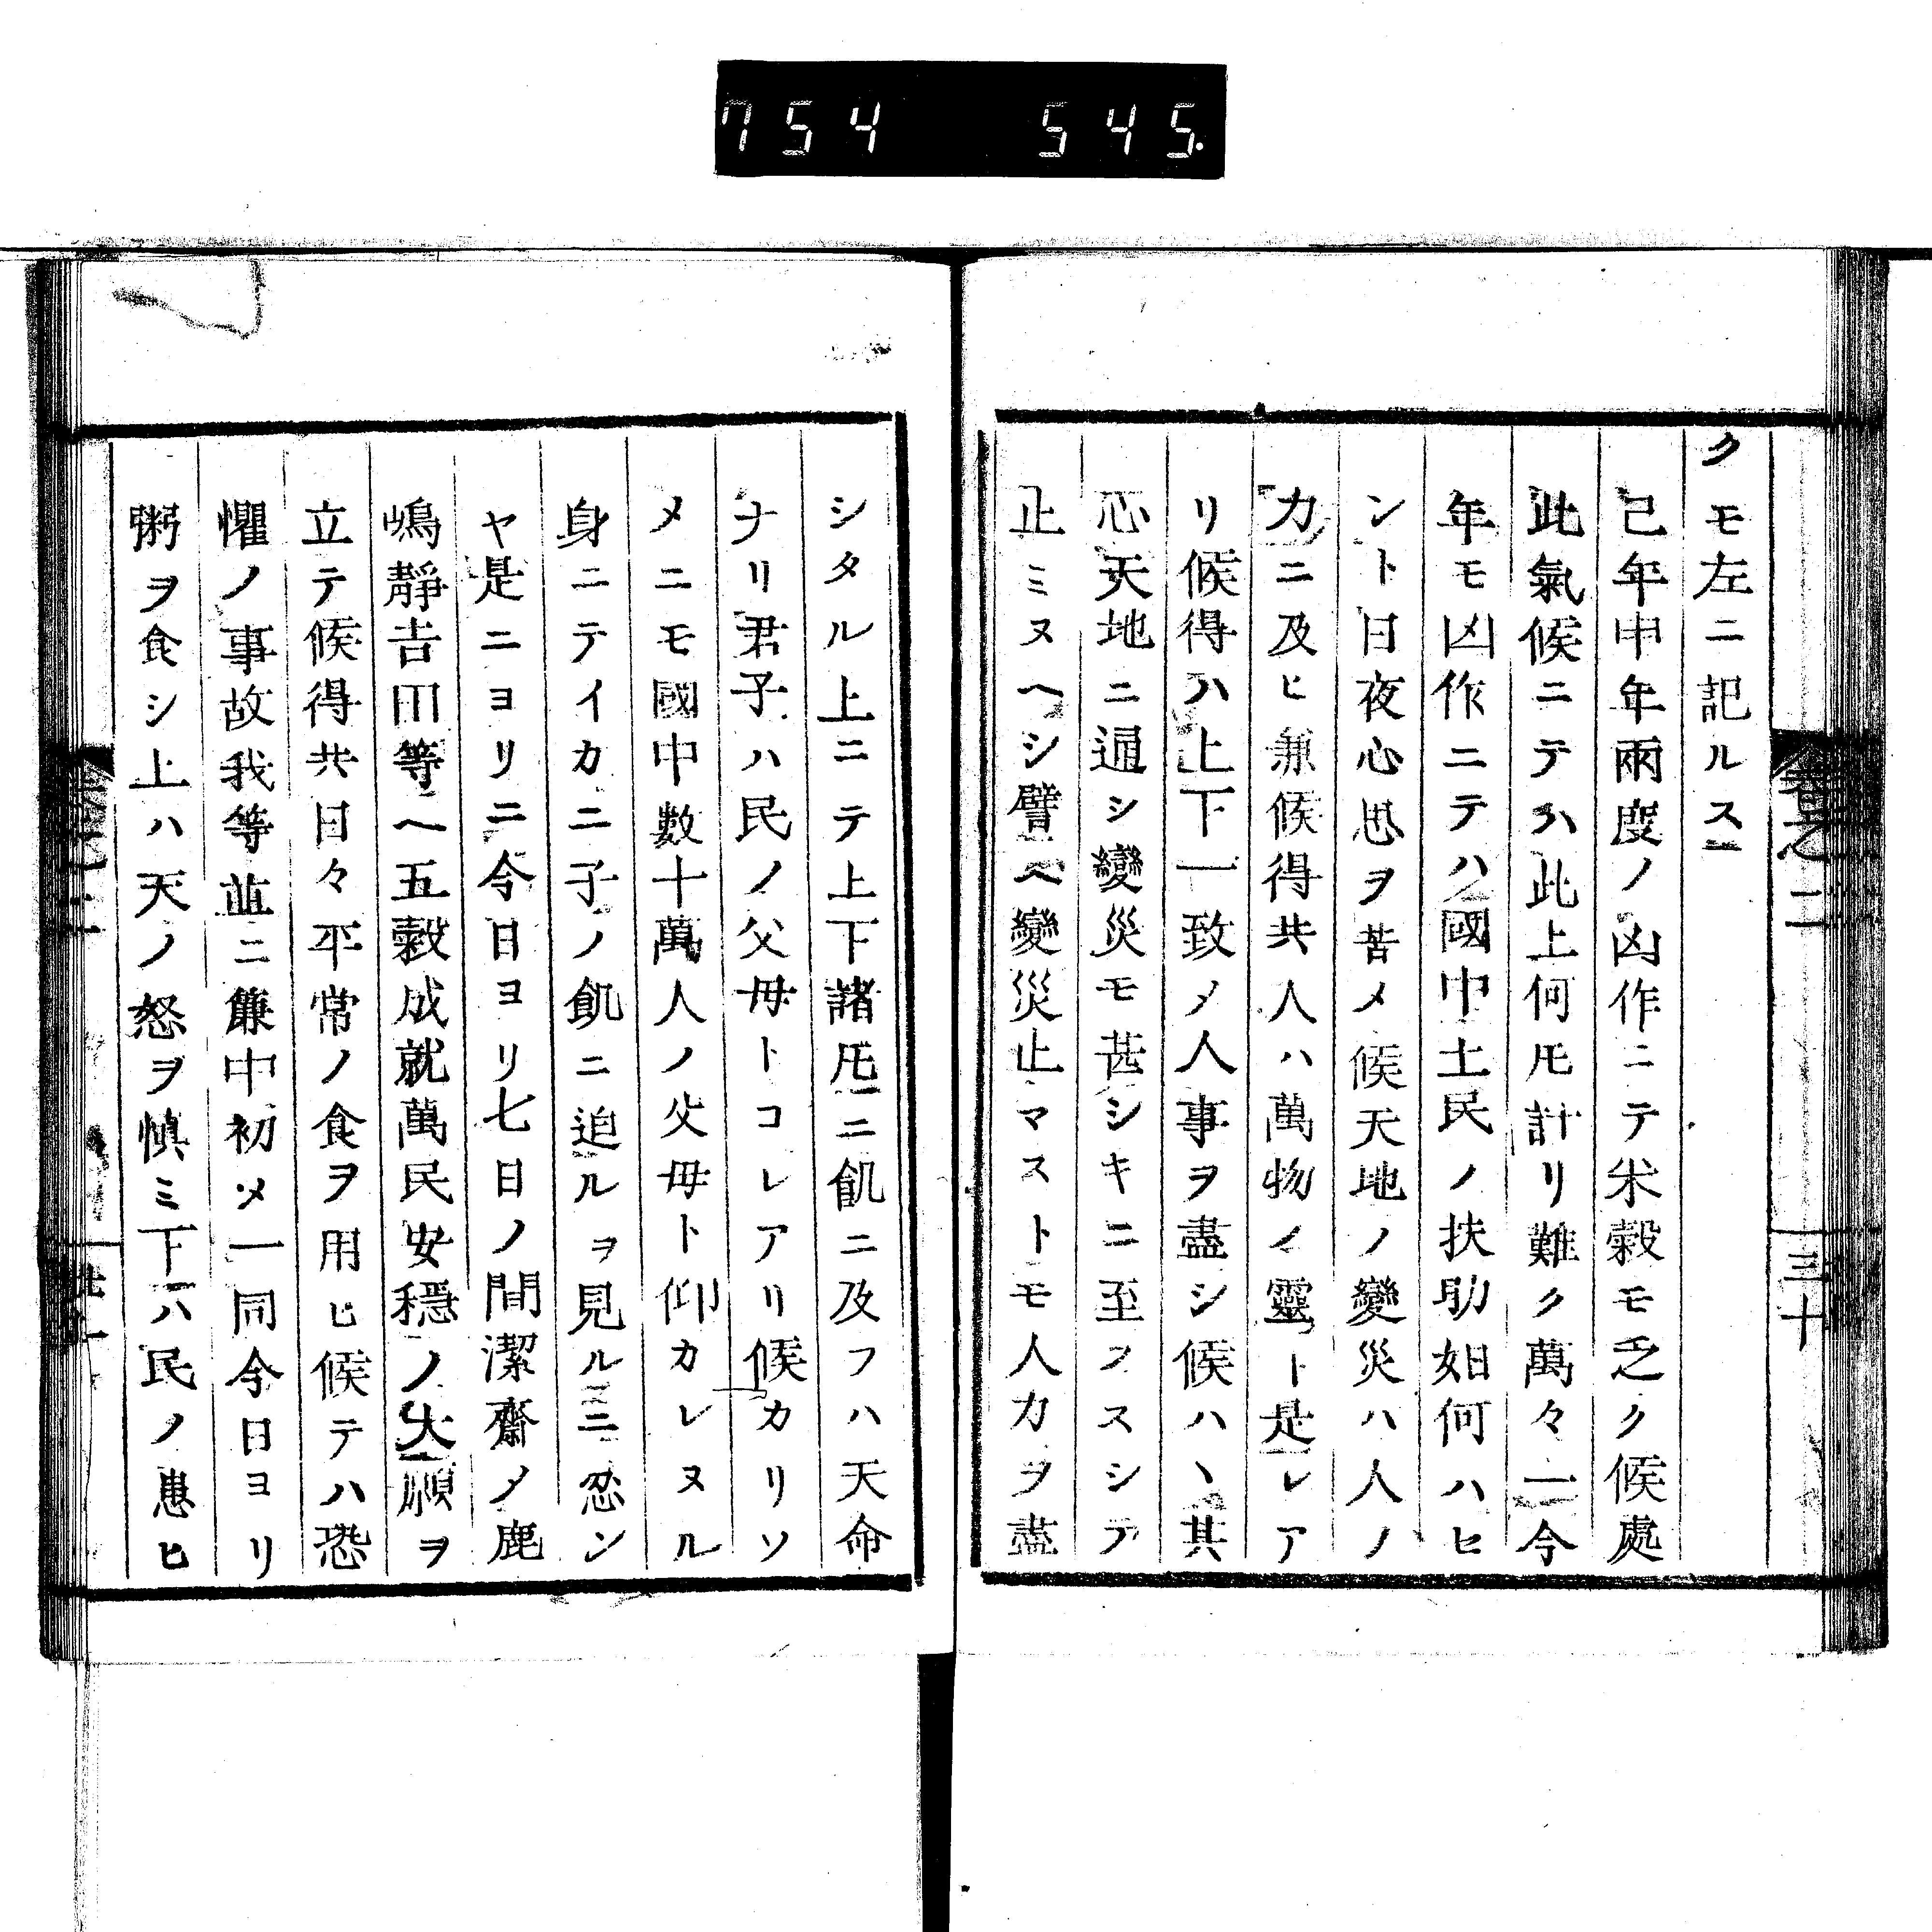 754 545.
巻之二
三十
クモ左ニ記ルス
己年申年兩度ノ凶作ニテ米穀モ乏ク候處
此氣候ニテハ此上何𪜈計リ難ク萬々一今
年モ凶作ニテハ國中士民ノ扶助如何ハヒ
ント日夜心思ヲ苦メ候天地ノ變災ハ人ノ
力ニ及ヒ兼候得共人ハ萬物ノ靈ト是レア
リ候得ハ上下一致ノ人事ヲ盡シ候ハヽ其
心天地ニ通シ變災モ甚シキニ至ラスシテ
止ミヌヘシ譬ヘ變災止マストモ人力ヲ盡
シタル上ニテ上下諸𪜈ニ飢ニ及フハ天命
ナリ君子ハ民ノ父母トコレアリ候カリソ
メニモ國中數十萬人ノ父母ト仰カレヌル
身ニテイカニ子ノ飢ニ迫ルヲ見ルニ忍ン
ヤ是ニヨリ二今日ヨリ七日ノ間潔齋ノ鹿
嶋靜吉田等ヘ五穀成就萬民安穩ノ大願ヲ
立テ候得共日々平常ノ食ヲ用ヒ候テハ恐
懼ノ事故我等並ニ簾中初メ一同今日ヨリ
粥ヲ食シ上ハ天ノ怒ヲ慎ミ下ハ民ノ患ヒ